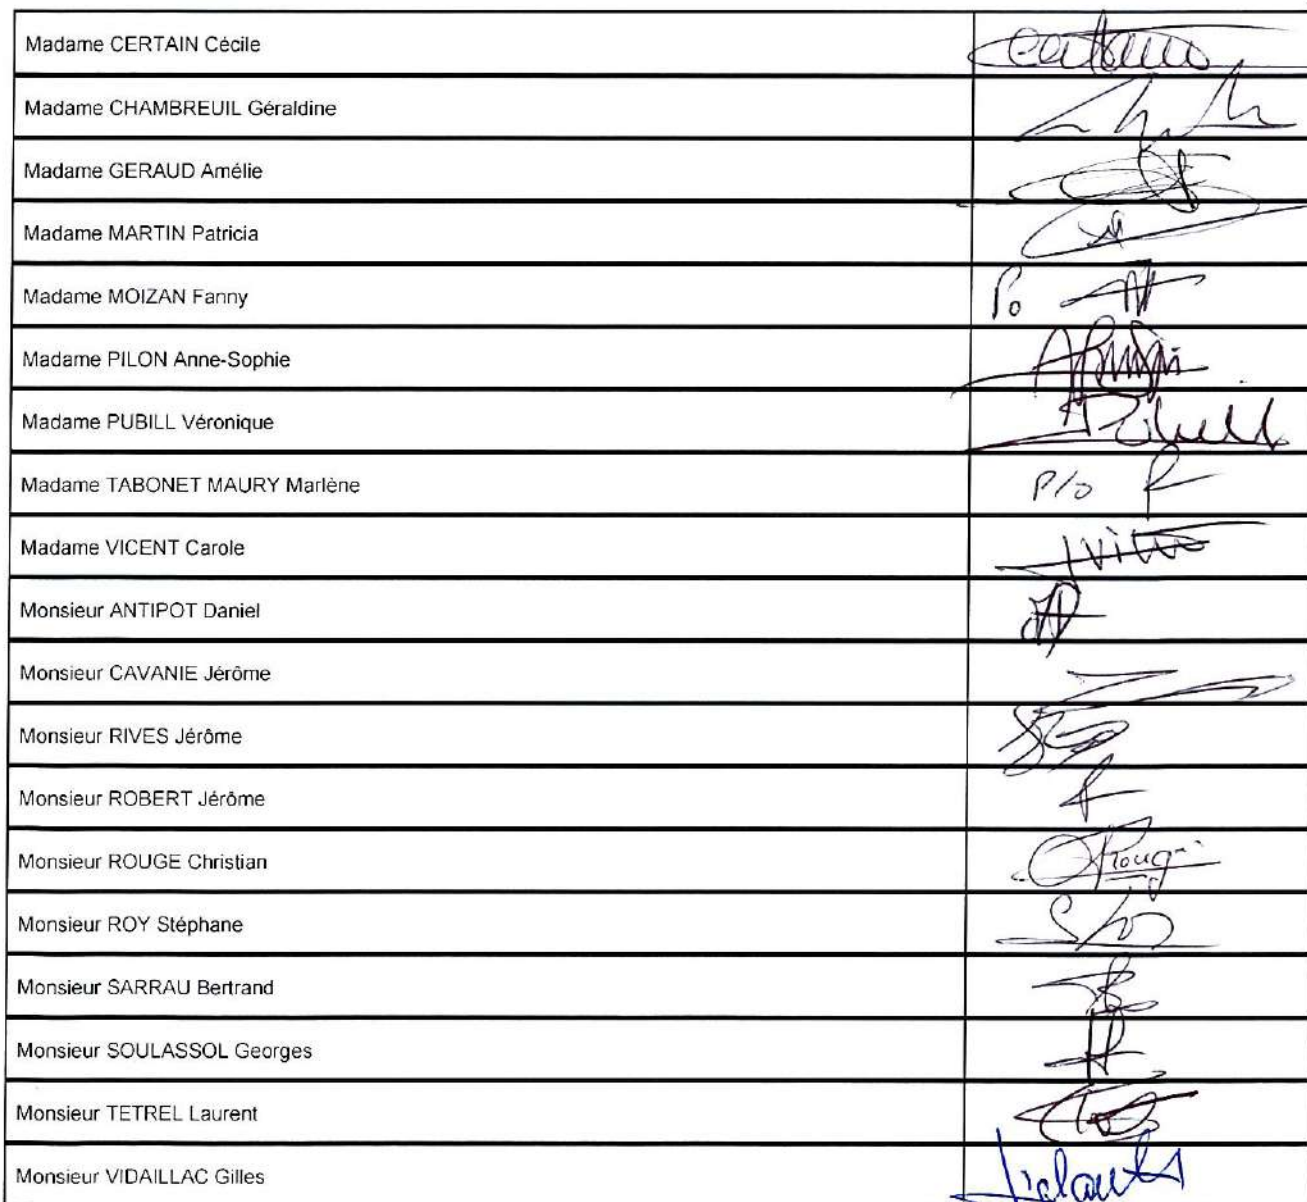 Madame CERTAIN Cécile
Madame CHAMBREUIL Géraldine
Madame GERAUD Amélie
Madame MARTIN Patricia
Madame MOIZAN Fanny Po
Madame PILON Anne-Sophie
Madame PUBILL Véronique
Madame TABONET MAURY Marlène P/o
Madame VICENT Carole
Monsieur ANTIPOT Daniel
Monsieur CAVANIE Jérôme
Monsieur RIVES Jérôme
Monsieur ROBERT Jérôme
Monsieur ROUGE Christian
Monsieur ROY Stéphane
Monsieur SARRAU Bertrand
Monsieur SOULASSOL Georges
Monsieur TETREL Laurent
Monsieur VIDAILLAC Gilles